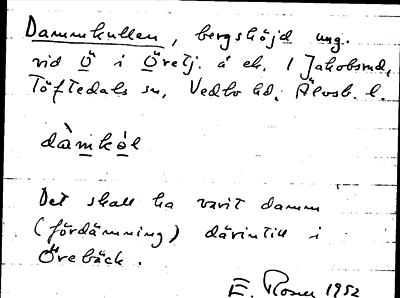 Dammkullen, bergshöjd ung.
vid Ö i Öretj. å ek. 1 Jakobsrud,
Töftedals sn, Vedbo hd, Älvsb. l.
dàmkòl
Det skall ha varit damm
(fördämning) därintill i
Örebäck.
E. Rosell 1952